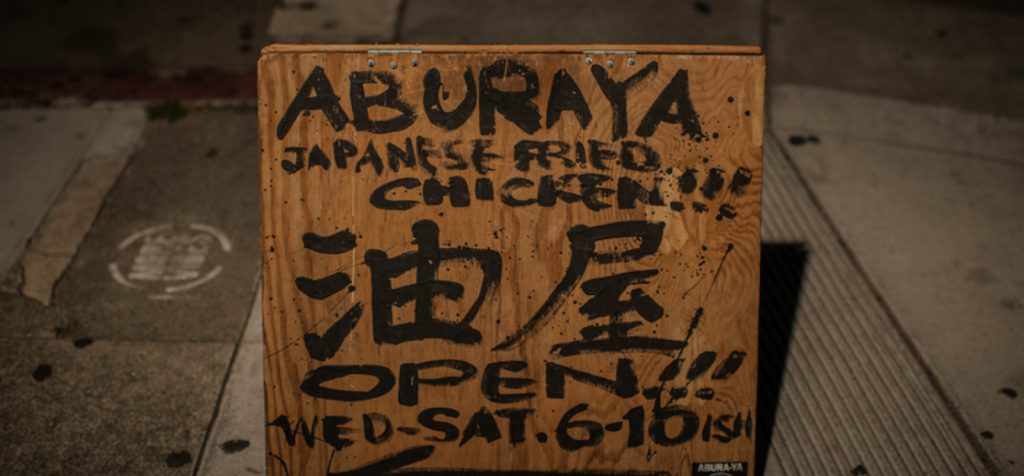 ABURAYA
JAPANESE FRIED
CHICKEN!!!
油屋
OPEN!!!
WED-SAT. 6-10ISH
ABURA-YA